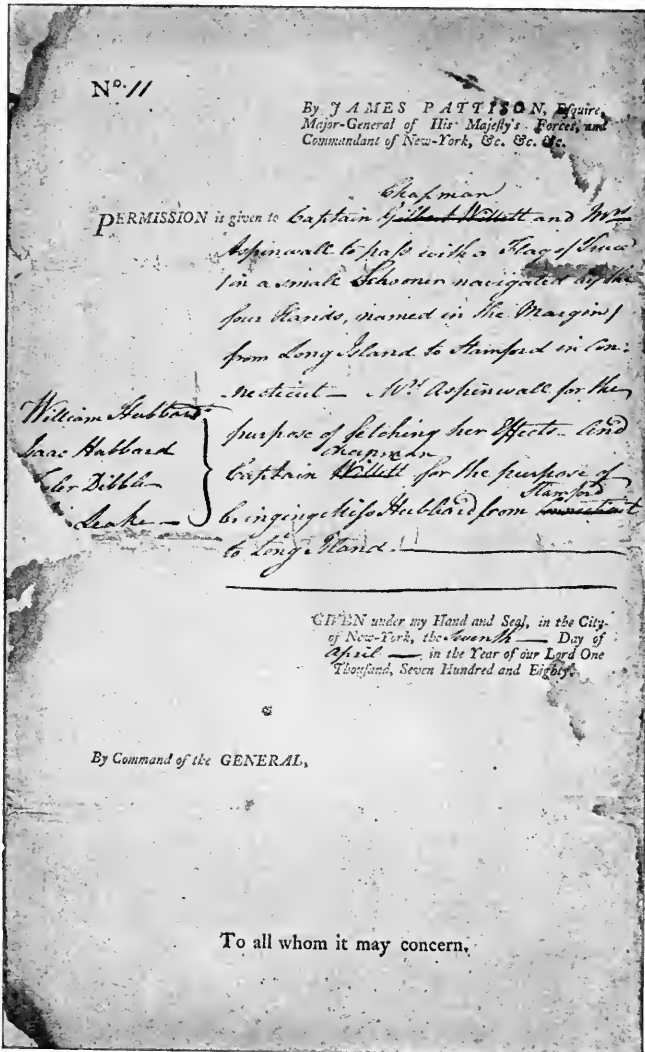 No. 11
By JAMES PATTISON, Esquire,
Major-General of His Majesty's Forces, and
Commandant of New-York, &c. &c. &c.
Chapman
PERMISSION is given to Captain Gilbert Willett and Mrs
Aspinwall to pass with a Flag of Truce
(in a small Schooner navigated by the
four Hands, named in the Margin)
from Long Island to Stamford in Con:
necticut — Mrs Aspinwall for the
purpose of fetching her Effects — And
Chapman
Captain Willett for the purpose of
Stamford
bringing Miss Hubbard from Connecticut
to Long Island.
William Hubbard
Isaac Hubbard
Dibble
Leake
GIVEN under my Hand and Seal, in the City
of New-York, the Seventh Day of
April in the Year of our Lord One
Thousand, Seven Hundred and Eighty.
By Command of the GENERAL,
To all whom it may concern.